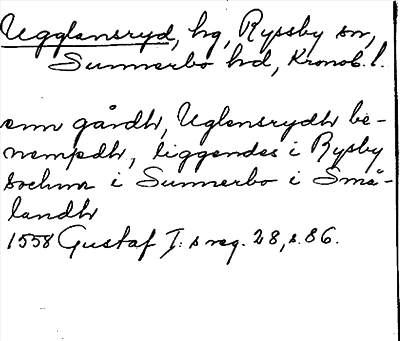 Ugglansryd, hg, Ryssby sn,
Sunnerbo hd, Kronob. l.
enn gårdh, Uglensrydh be-
nempdh, liggendes i Rysby
sochnn i Sunnerbo i Små-
landh
1558 Gustaf I:s reg. 28, s. 86.